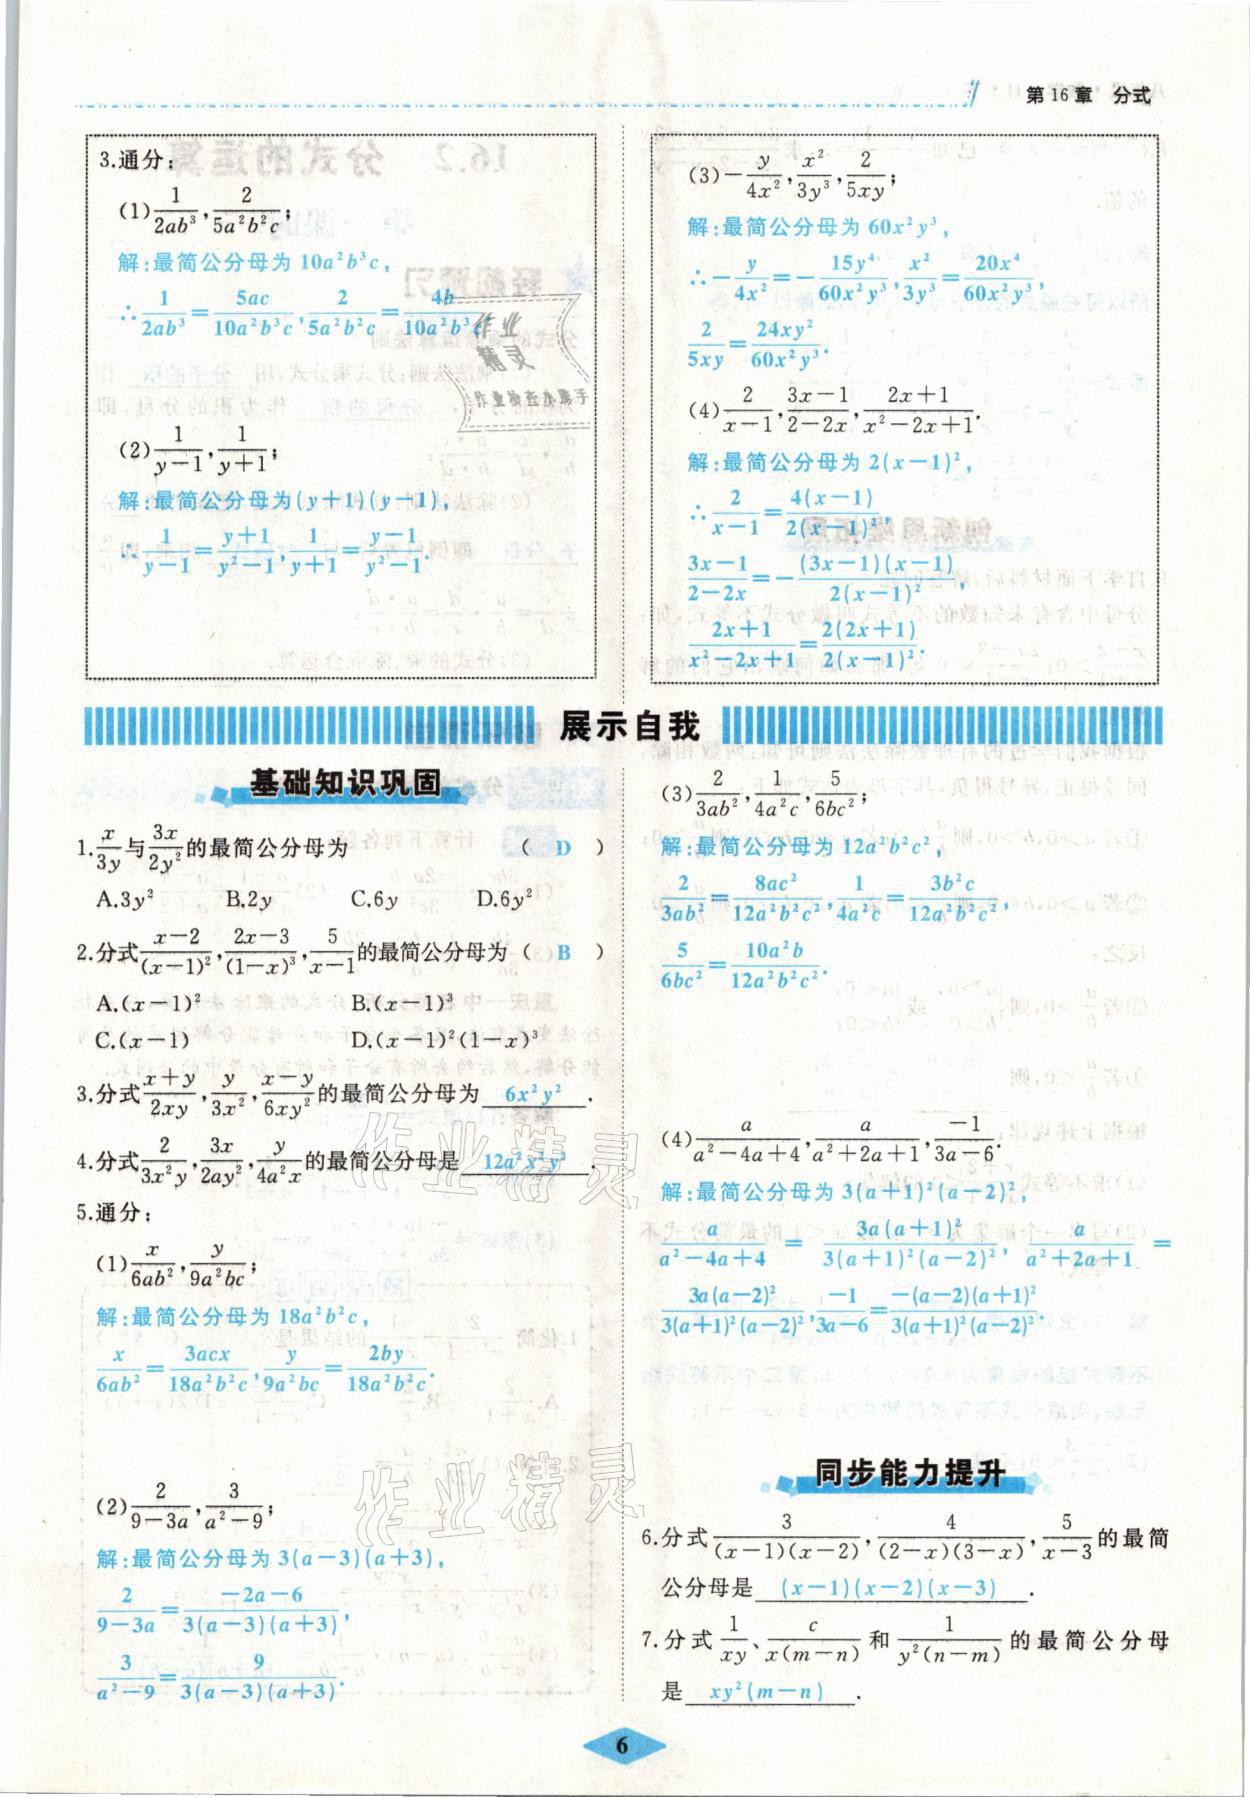 第16章 分式
3.通分:
(1) 1/(2ab³), 2/(5a²b²c);
解:最简公分母为 10a²b³c,
∴ 1/(2ab³) = 5ac/(10a²b³c), 2/(5a²b²c) = 4b/(10a²b³c).
(2) 1/(y-1), 1/(y+1);
解:最简公分母为(y+1)(y-1),
∴ 1/(y-1) = (y+1)/(y²-1), 1/(y+1) = (y-1)/(y²-1).
(3) -y/(4x²), x²/(3y³), 2/(5xy);
解:最简公分母为 60x²y³,
∴ -y/(4x²) = -15y⁴/(60x²y³), x²/(3y³) = 20x⁴/(60x²y³),
2/(5xy) = 24xy²/(60x²y³).
(4) 2/(x-1), (3x-1)/(2-2x), (2x+1)/(x²-2x+1).
解:最简公分母为 2(x-1)²,
∴ 2/(x-1) = 4(x-1)/(2(x-1)²),
(3x-1)/(2-2x) = -(3x-1)(x-1)/(2(x-1)²),
(2x+1)/(x²-2x+1) = 2(2x+1)/(2(x-1)²).
展示自我
基础知识巩固
1. x/(3y) 与 3x/(2y²) 的最简公分母为 ( D )
A.3y² B.2y C.6y D.6y²
2.分式 (x-2)/(x-1)², (2x-3)/(1-x)³, 5/(x-1) 的最简公分母为 ( B )
A.(x-1)² B.(x-1)³
C.(x-1) D.(x-1)²(1-x)³
3.分式 (x+y)/(2xy), y/(3x²), (x-y)/(6xy²) 的最简公分母为 6x²y² .
4.分式 2/(3x²y), 3x/(2ay²), y/(4a²x) 的最简公分母是 12a²x²y² .
5.通分:
(1) x/(6ab²), y/(9a²bc);
解:最简公分母为 18a²b²c,
x/(6ab²) = 3acx/(18a²b²c), y/(9a²bc) = 2by/(18a²b²c).
(2) 2/(9-3a), 3/(a²-9);
解:最简公分母为 3(a-3)(a+3),
2/(9-3a) = (-2a-6)/(3(a-3)(a+3)),
3/(a²-9) = 9/(3(a-3)(a+3)).
(3) 2/(3ab²), 1/(4a²c), 5/(6bc²);
解:最简公分母为 12a²b²c²,
2/(3ab²) = 8ac²/(12a²b²c²), 1/(4a²c) = 3b²c/(12a²b²c²),
5/(6bc²) = 10a²b/(12a²b²c²).
(4) a/(a²-4a+4), a/(a²+2a+1), -1/(3a-6).
解:最简公分母为 3(a+1)²(a-2)²,
a/(a²-4a+4) = 3a(a+1)²/(3(a+1)²(a-2)²), a/(a²+2a+1) =
3a(a-2)²/(3(a+1)²(a-2)²), -1/(3a-6) = -(a-2)(a+1)²/(3(a+1)²(a-2)²).
同步能力提升
6.分式 3/((x-1)(x-2)), 4/((2-x)(3-x)), 5/(x-3) 的最简
公分母是 (x-1)(x-2)(x-3) .
7.分式 1/(xy)、c/(x(m-n)) 和 1/(y²(n-m)) 的最简公分母
是 xy²(m-n) .
6
作业
精灵
作业精灵
作业精灵